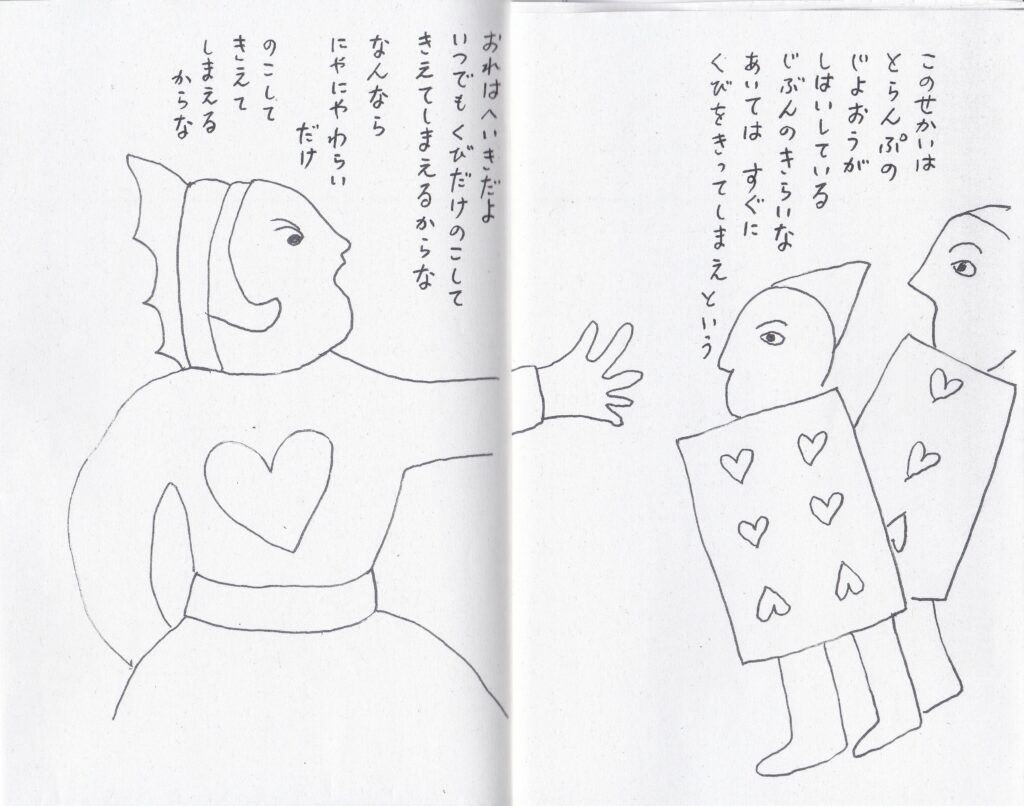 このせかいは
とらんぷの
じよおうが
しはいしている
じぶんのきらいな
あいては すぐに
くびをきってしまえという
おれはへいきだよ
いつでもくびだけのこして
きえてしまえるからな
なんなら
にやにやわらい
だけ
のこして
きえて
しまえる
からな